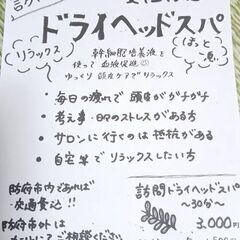 ドライヘッドスパ
リラックス
ほっと
一息
幹細胞培養液を
使って血液促進
ゆっくり頭皮ケアでリラックス
・毎日の疲れで頭がガチガチ
・考え事・ORのストレスがある方
・サロンに行くのは抵抗がある
・自宅でリラックスしたい方
防府市内であれば
交通費込!!
防府市外は
ご相談ください
訪問ドライヘッドスパ
〜30分〜
3,000円